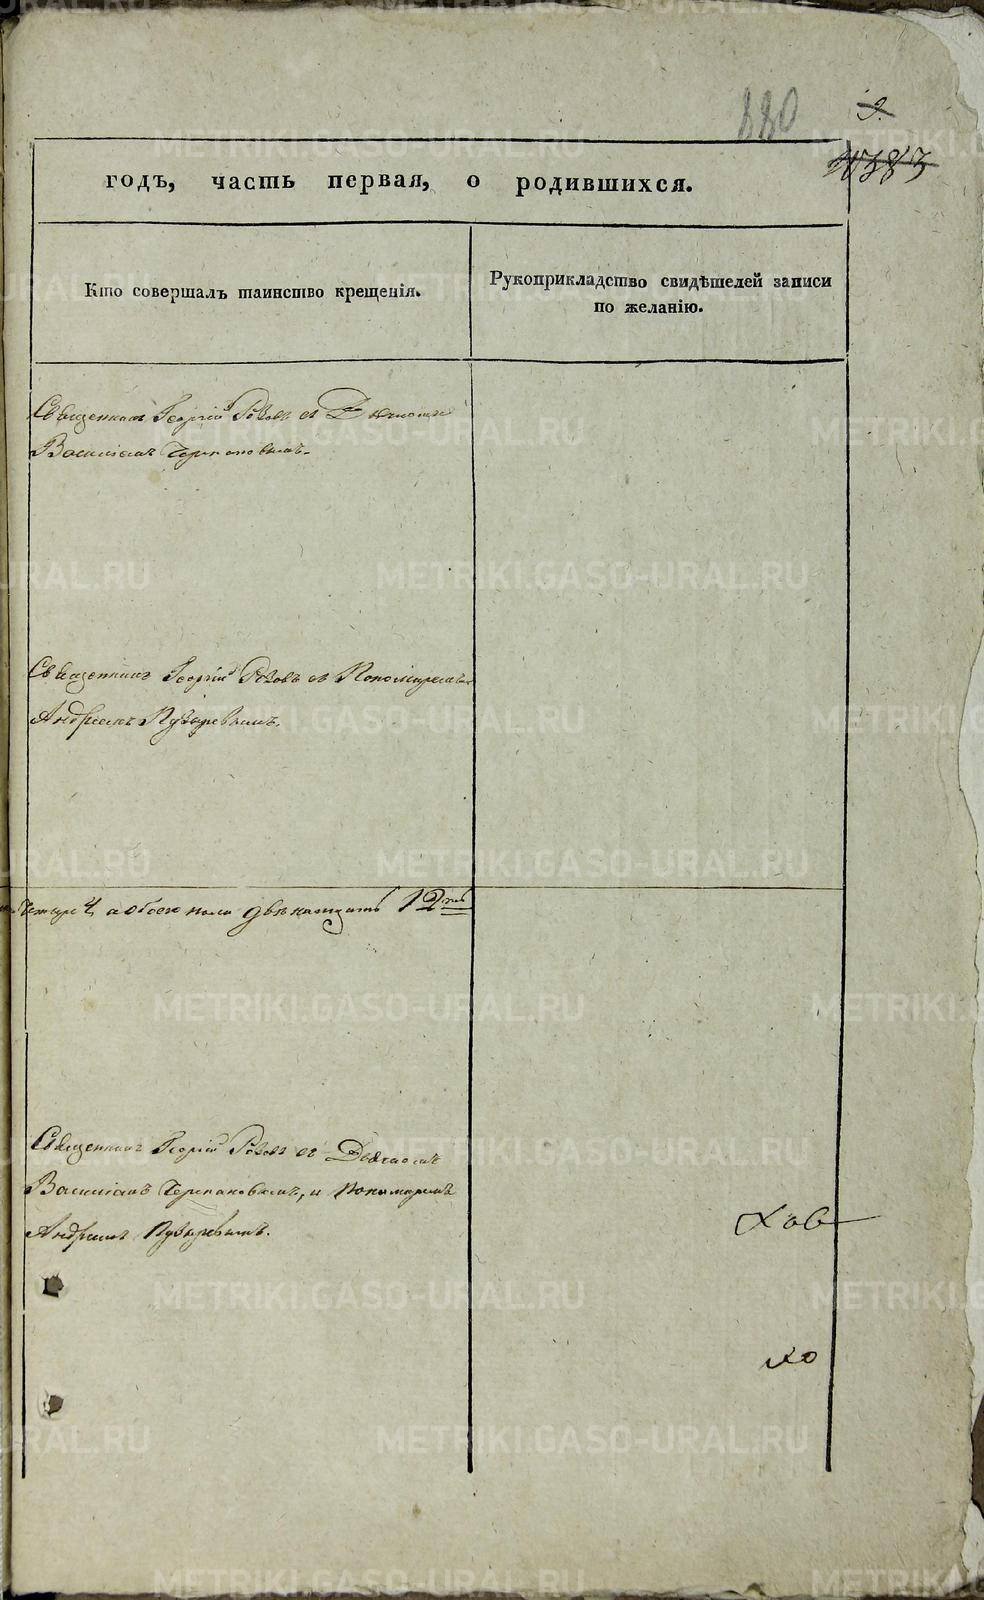 880
9.
годъ, часть первая, о родившихся.
Кто совершалъ таинство крещенія.
Рукоприкладство свидѣтелей записи
по желанію.
Священникъ Георгій съ Дьячкомъ
Василіемъ Черпановымъ.
Священникъ Георгій съ Пономаремъ
Андреемъ Пузыревымъ.
четыре 4, а обоего пола двѣнатцать 12ть
Священникъ Георгій съ Дьячкомъ
Василіемъ Черпановымъ, и Пономаремъ
Андреемъ Пузыревымъ.
METRIKI.GASO-URAL.RU